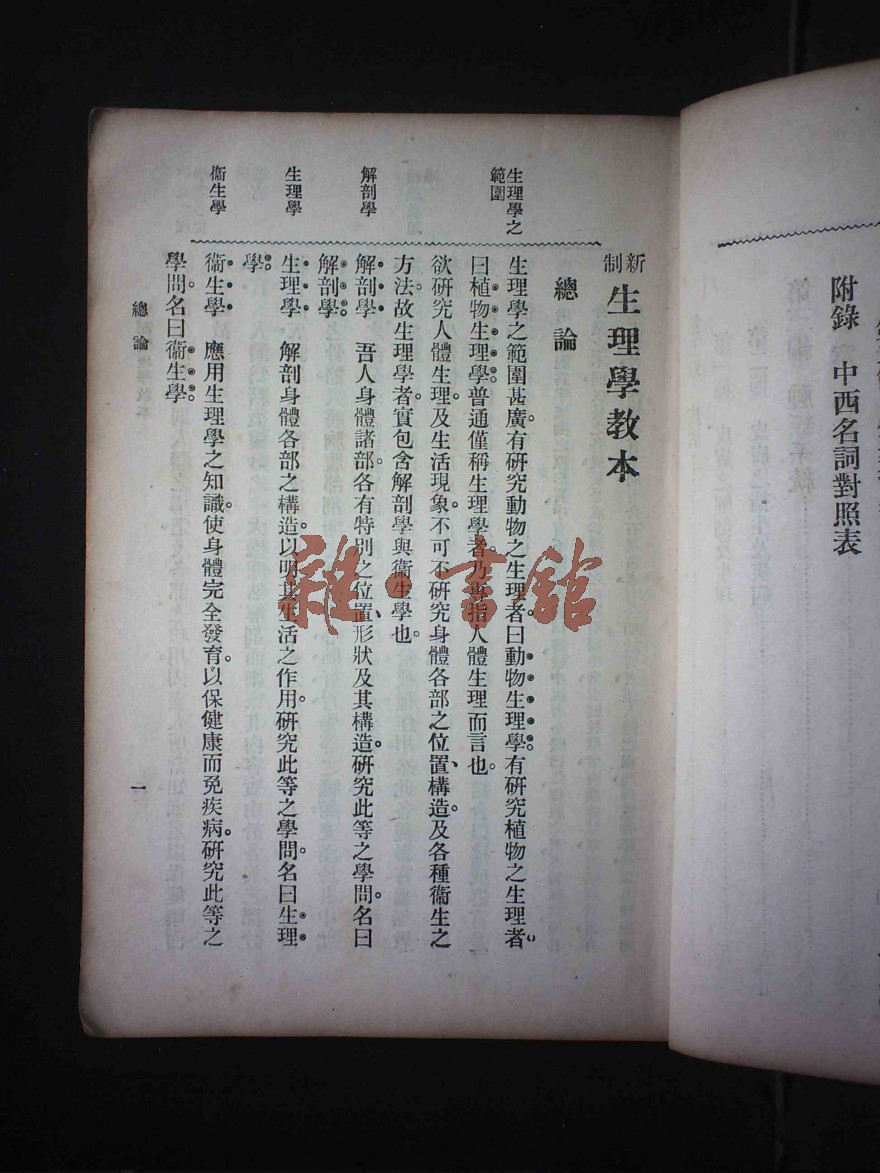 附錄　中西名詞對照表
新制
生理學教本
總論
生理學之
範圍
生理學之範圍甚廣。有研究動物之生理者。曰動物生理學。有研究植物之生理者。
曰植物生理學。普通僅稱生理學者。乃專指人體生理而言也。
欲研究人體生理。及生活現象。不可不研究身體各部之位置、構造。及各種衞生之
方法。故生理學者。實包含解剖學與衞生學也。
解剖學
解剖學　吾人身體諸部。各有特別之位置、形狀及其構造。研究此等之學問。名曰
解剖學。
生理學
生理學　解剖身體各部之構造。以明其生活之作用。研究此等之學問。名曰生理
學。
衞生學
衞生學　應用生理學之知識。使身體完全發育。以保健康而免疾病。研究此等之
學問。名曰衞生學。
總論
一
雜·書館